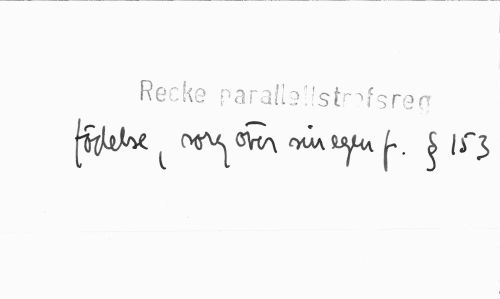 Recke parallellstrofsreg
födelse, sorg över sin egen f. § 153